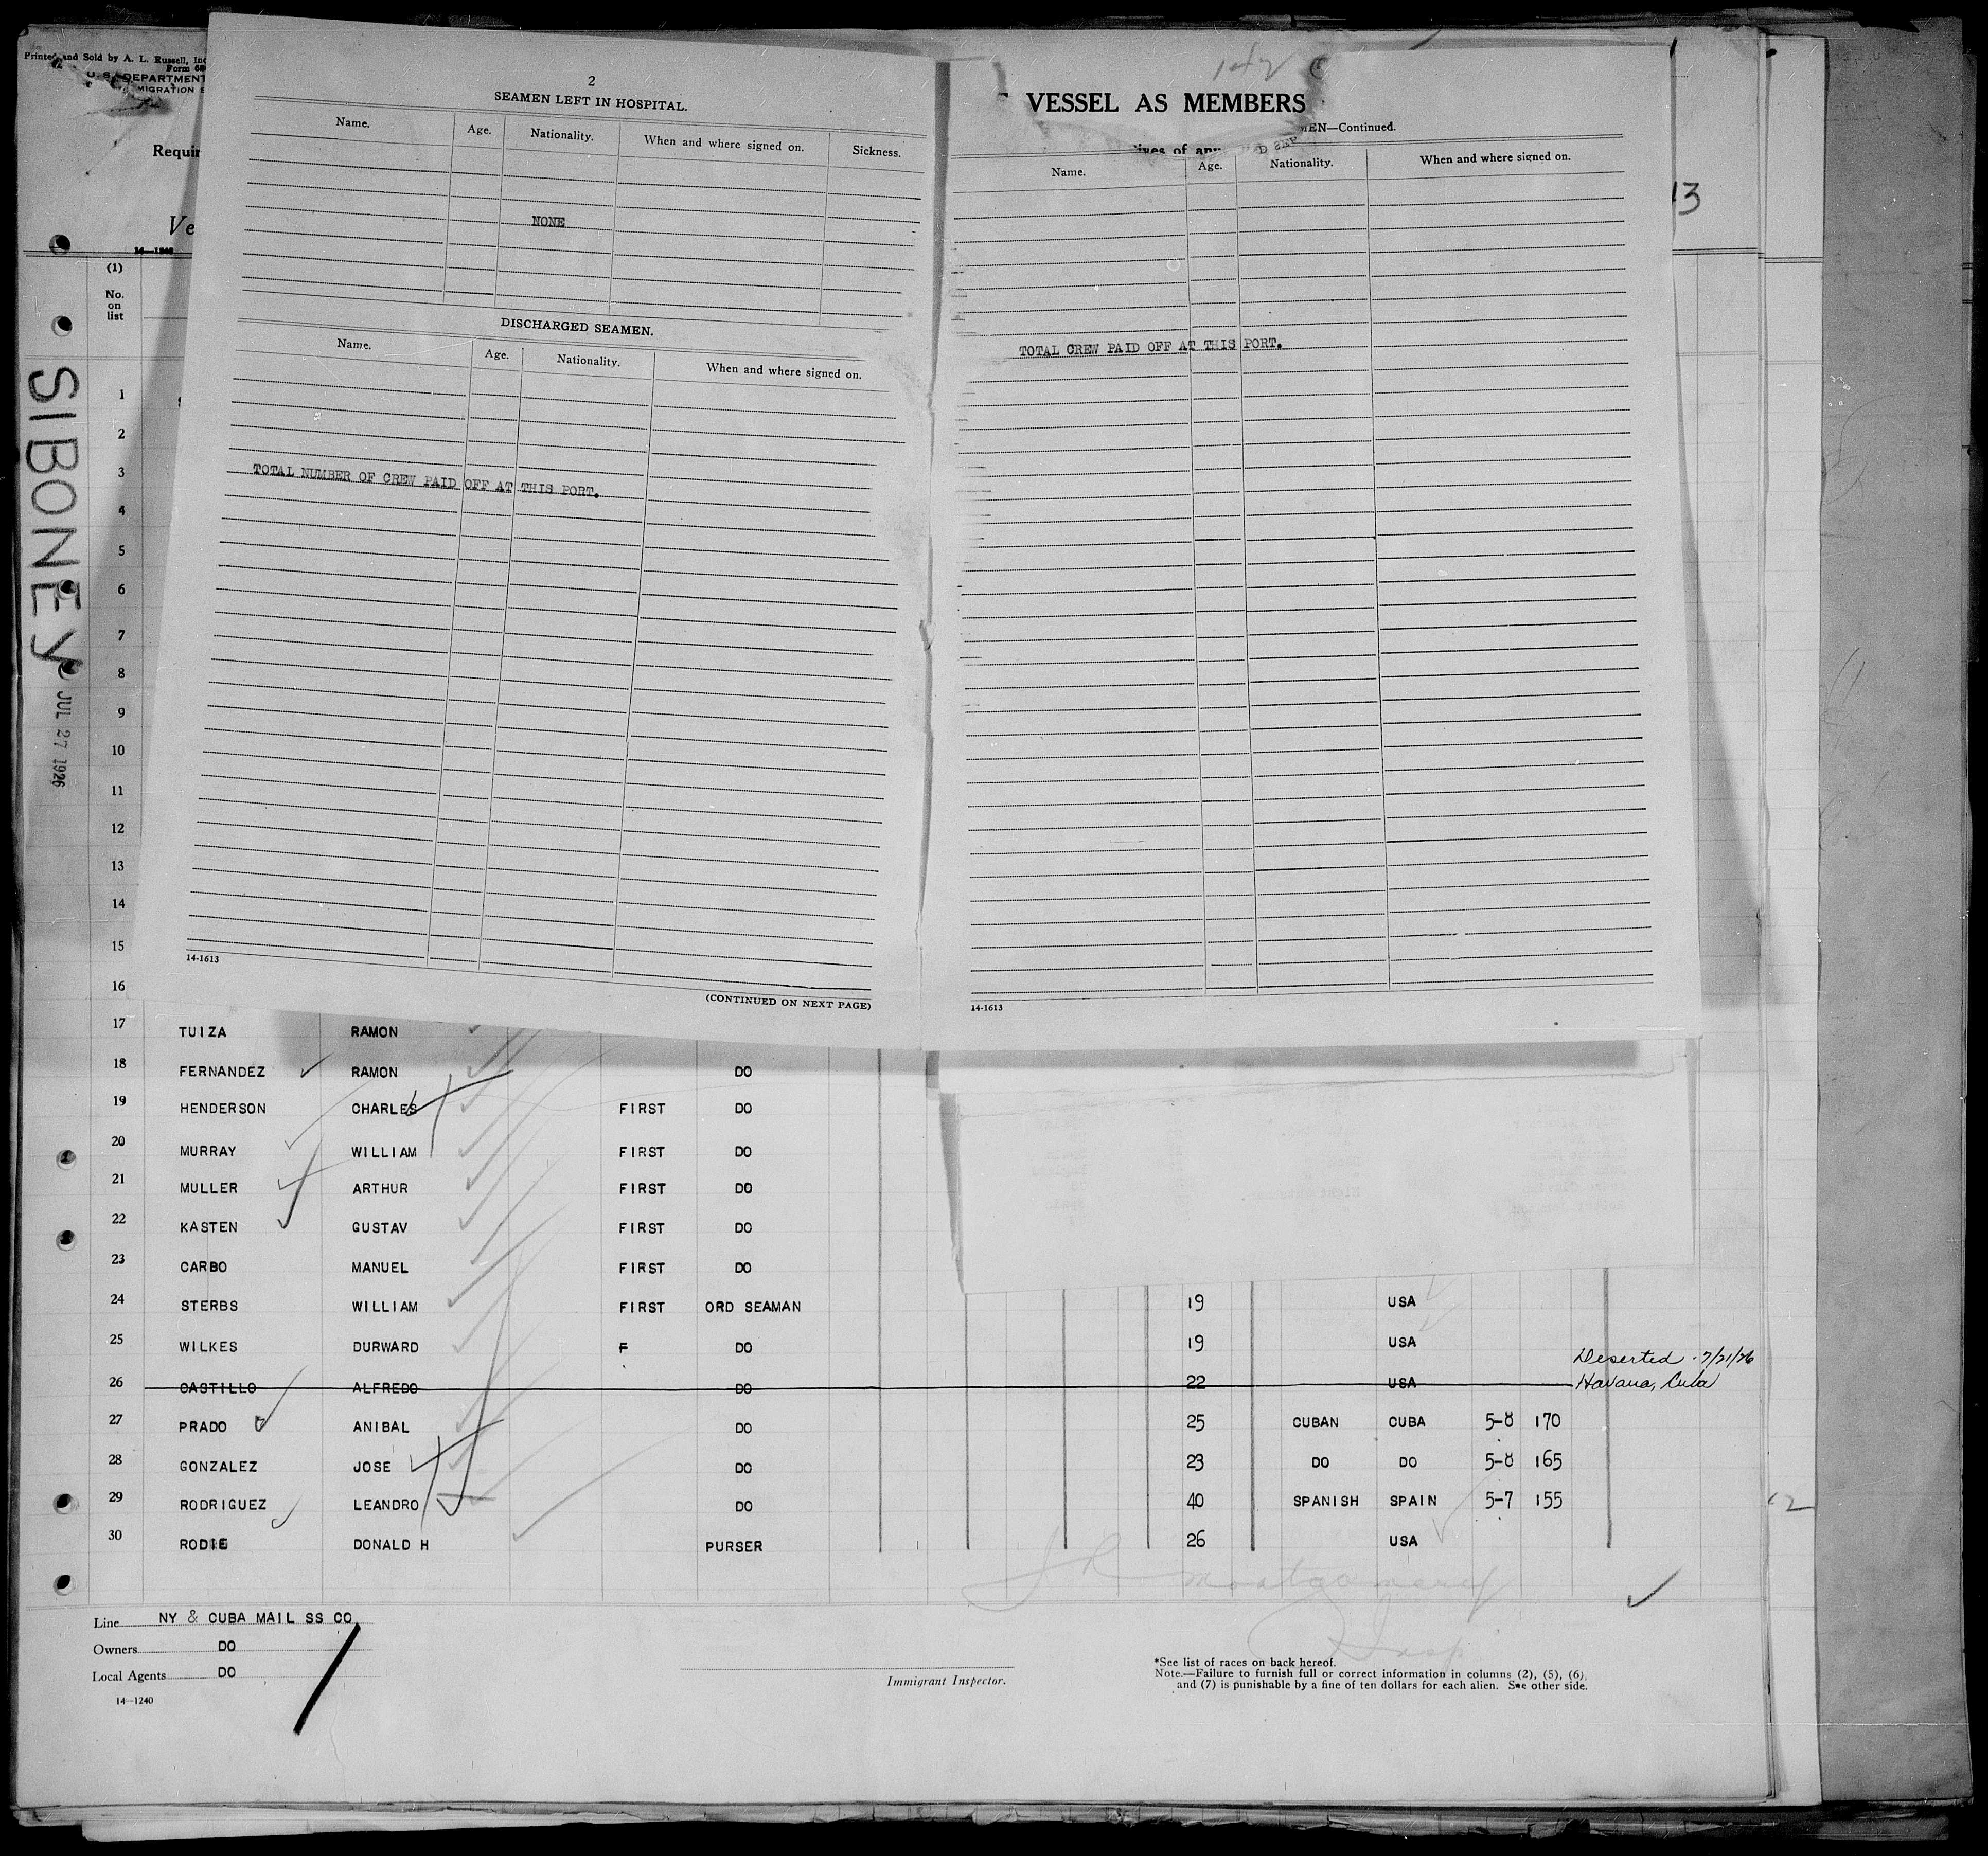 Printed and Sold by A. L. Russell, Inc
Form 68
U. S. DEPARTMENT
MIGRATION S
Requir
Ve
14-1240
SIBONEY
JUL 27 1926
142
2
SEAMEN LEFT IN HOSPITAL.
Name. Age. Nationality. When and where signed on. Sickness.
NONE
DISCHARGED SEAMEN.
Name. Age. Nationality. When and where signed on.
TOTAL NUMBER OF CREW PAID OFF AT THIS PORT.
14-1613
(CONTINUED ON NEXT PAGE)
VESSEL AS MEMBERS
MEN—Continued.
ives of any
D SEP
Name. Age. Nationality. When and where signed on.
TOTAL CREW PAID OFF AT THIS PORT.
14-1613
13
(1)
No.
on
list
1
2
3
4
5
6
7
8
9
10
11
12
13
14
15
16
17 TUIZA RAMON
18 FERNANDEZ RAMON DO
19 HENDERSON CHARLES FIRST DO
20 MURRAY WILLIAM FIRST DO
21 MULLER ARTHUR FIRST DO
22 KASTEN GUSTAV FIRST DO
23 CARBO MANUEL FIRST DO
24 STERBS WILLIAM FIRST ORD SEAMAN 19 USA
25 WILKES DURWARD F DO 19 USA
Deserted 7/21/26
26 CASTILLO ALFREDO DO 22 USA Havana, Cuba
27 PRADO ANIBAL DO 25 CUBAN CUBA 5-8 170
28 GONZALEZ JOSE DO 23 DO DO 5-8 165
29 RODRIGUEZ LEANDRO DO 40 SPANISH SPAIN 5-7 155
30 RODIE DONALD H PURSER 26 USA
J R Montgomery
Insp
Line NY & CUBA MAIL SS CO.
Owners DO
Local Agents DO
14-1240
Immigrant Inspector.
*See list of races on back hereof.
Note.—Failure to furnish full or correct information in columns (2), (5), (6),
and (7) is punishable by a fine of ten dollars for each alien. See other side.